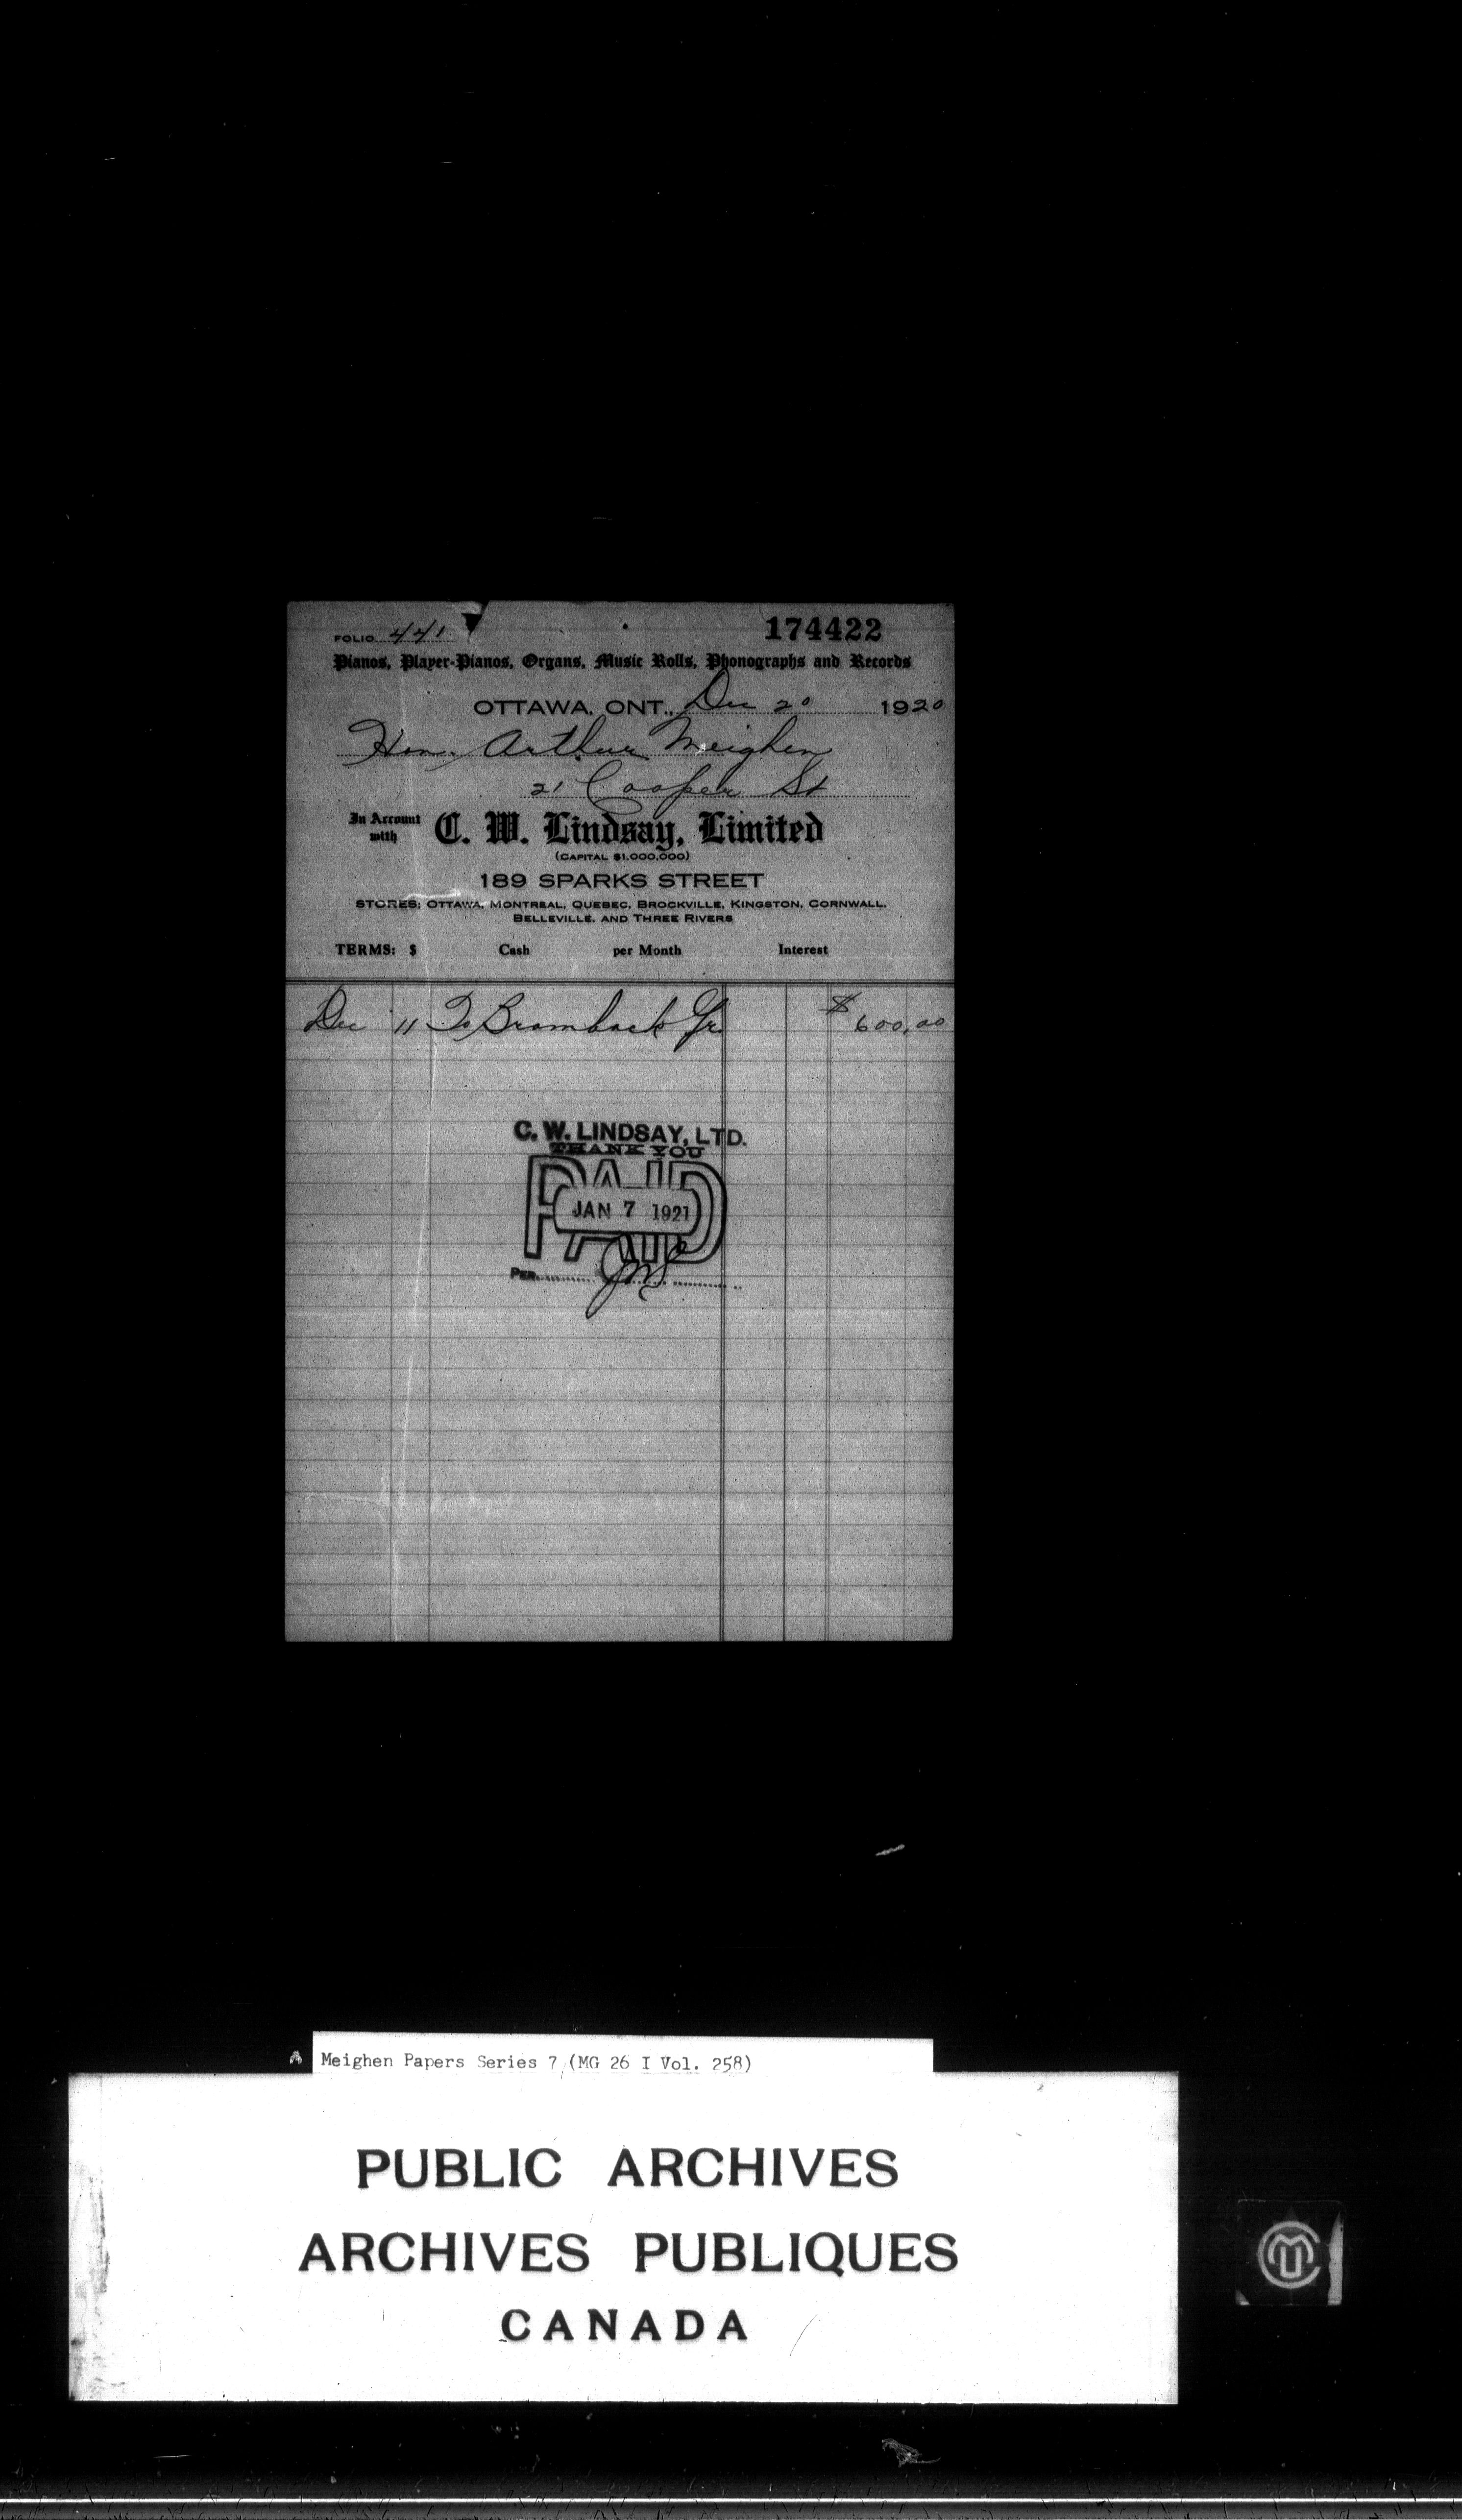 FOLIO 441
174422
Pianos, Player-Pianos, Organs, Music Rolls, Phonographs and Records
OTTAWA, ONT., Dec 20 1920
Hon. Arthur Meighen
21 Cooper St
In Account with C. W. Lindsay, Limited
(CAPITAL $1,000,000)
189 SPARKS STREET
STORES: OTTAWA, MONTREAL, QUEBEC, BROCKVILLE, KINGSTON, CORNWALL,
BELLEVILLE, AND THREE RIVERS
TERMS: $ Cash per Month Interest
Dec 11 To Brambach Gr. $600.00
C. W. LINDSAY, LTD.
THANK YOU
PAID
JAN 7 1921
PER
Meighen Papers Series 7 (MG 26 I Vol. 258)
PUBLIC ARCHIVES
ARCHIVES PUBLIQUES
CANADA